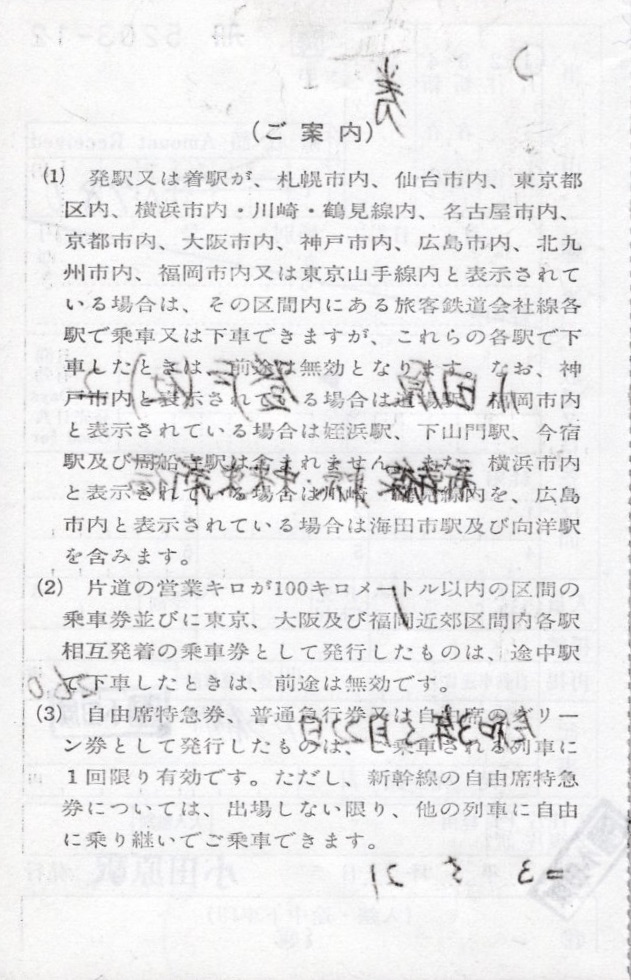 (ご案内)
(1) 発駅又は着駅が、札幌市内、仙台市内、東京都
区内、横浜市内・川崎・鶴見線内、名古屋市内、
京都市内、大阪市内、神戸市内、広島市内、北九
州市内、福岡市内又は東京山手線内と表示されて
いる場合は、その区間内にある旅客鉄道会社線各
駅で乗車又は下車できますが、これらの各駅で下
車したときは、前途は無効となります。なお、神
戸市内と表示されている場合は道場駅、福岡市内
と表示されている場合は姪浜駅、下山門駅、今宿
駅及び周船寺駅は含まれません。また、横浜市内
と表示されている場合は川崎・鶴見線内を、広島
市内と表示されている場合は海田市駅及び向洋駅
を含みます。
(2) 片道の営業キロが100キロメートル以内の区間の
乗車券並びに東京、大阪及び福岡近郊区間内各駅
相互発着の乗車券として発行したものは、途中駅
で下車したときは、前途は無効です。
(3) 自由席特急券、普通急行券又は自由席のグリー
ン券として発行したものは、ご乗車される列車に
1回限り有効です。ただし、新幹線の自由席特急
券については、出場しない限り、他の列車に自由
に乗り継いでご乗車できます。